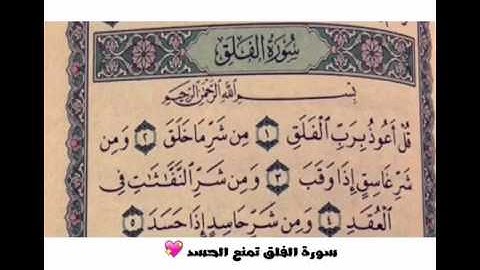 سُورَةُ الفَلَقِ
بِسْمِ اللَّهِ الرَّحْمَٰنِ الرَّحِيمِ
قُلْ أَعُوذُ بِرَبِّ الْفَلَقِ ١ مِن شَرِّ مَا خَلَقَ ٢ وَمِن
شَرِّ غَاسِقٍ إِذَا وَقَبَ ٣ وَمِن شَرِّ النَّفَّاثَاتِ فِي
الْعُقَدِ ٤ وَمِن شَرِّ حَاسِدٍ إِذَا حَسَدَ ٥
سورة الفلق تمنع الحسد 💘